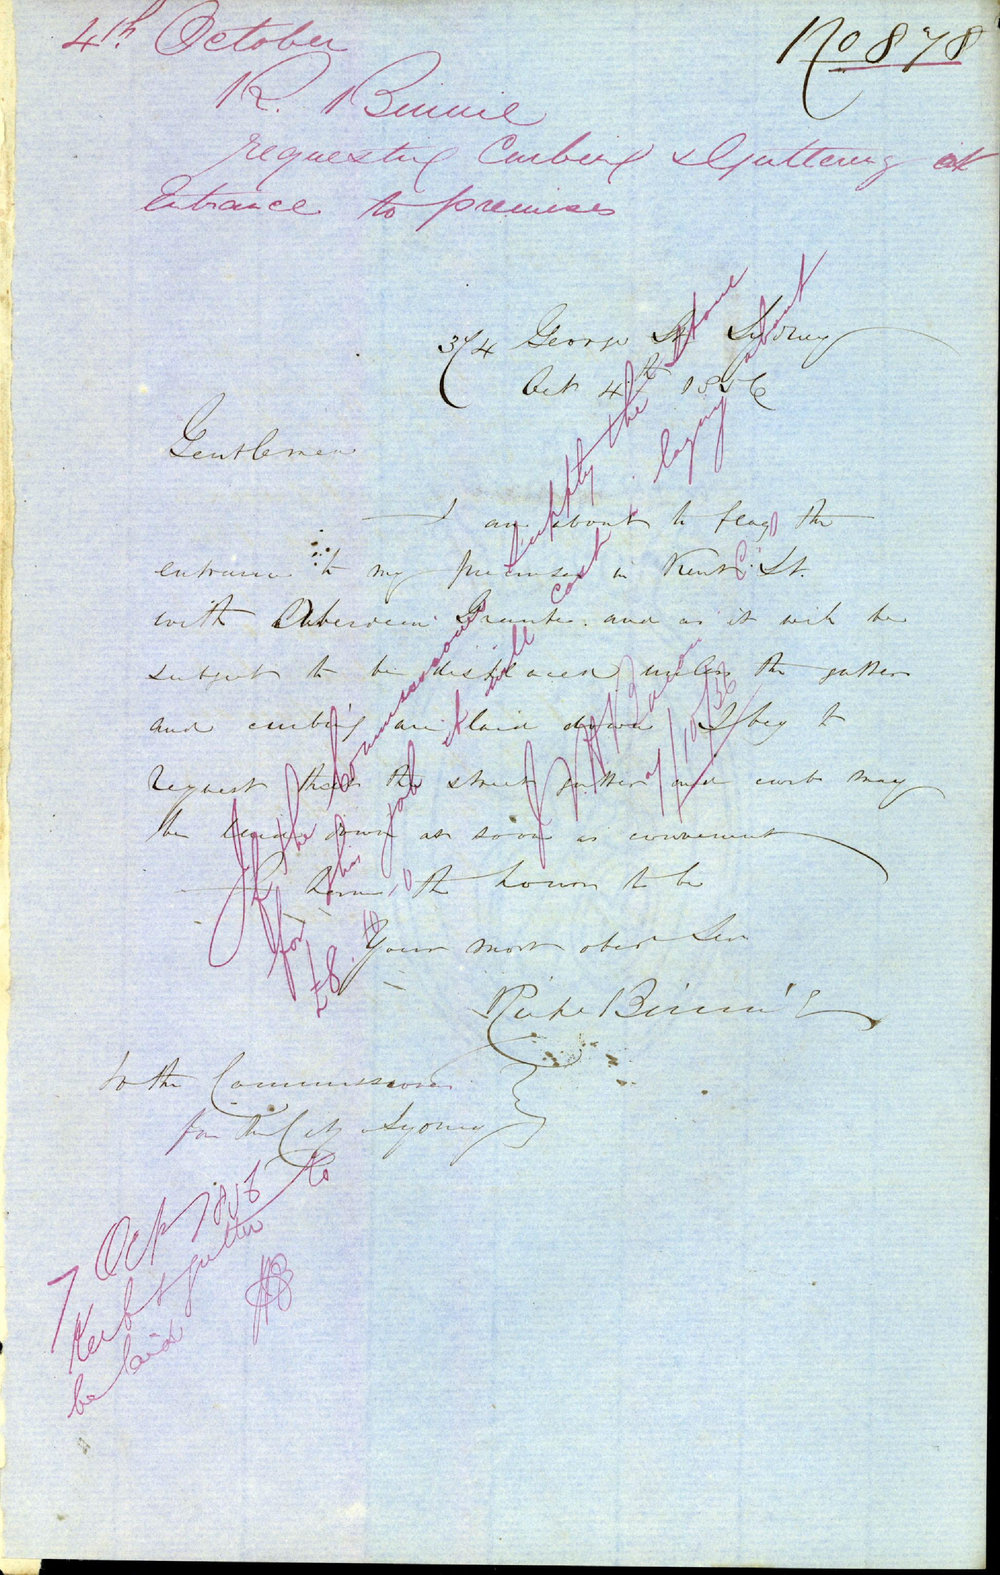 4th October
No 878
R. Binnie
requesting Curbing & Guttering at
Entrance to premises
374 George St Sydney
Oct 4th 1856
Gentlemen
I am about to flag the
entrance to my premises in Kent St.
with Aberdeen Granite and as it will be
subject to be displaced unless the gutter
and curbing are laid down I beg to
request that the street gutter and curb may
be laid down as soon as convenient
I have the honor to be
Your most obt Ser
Richd Binnie
To the Commissioners
for the City Sydney
If the Commissioners supply the stone
for this job it will cost laying about
£8.
7/10/56
7 Oct 1856
Kerb & gutter to
be laid